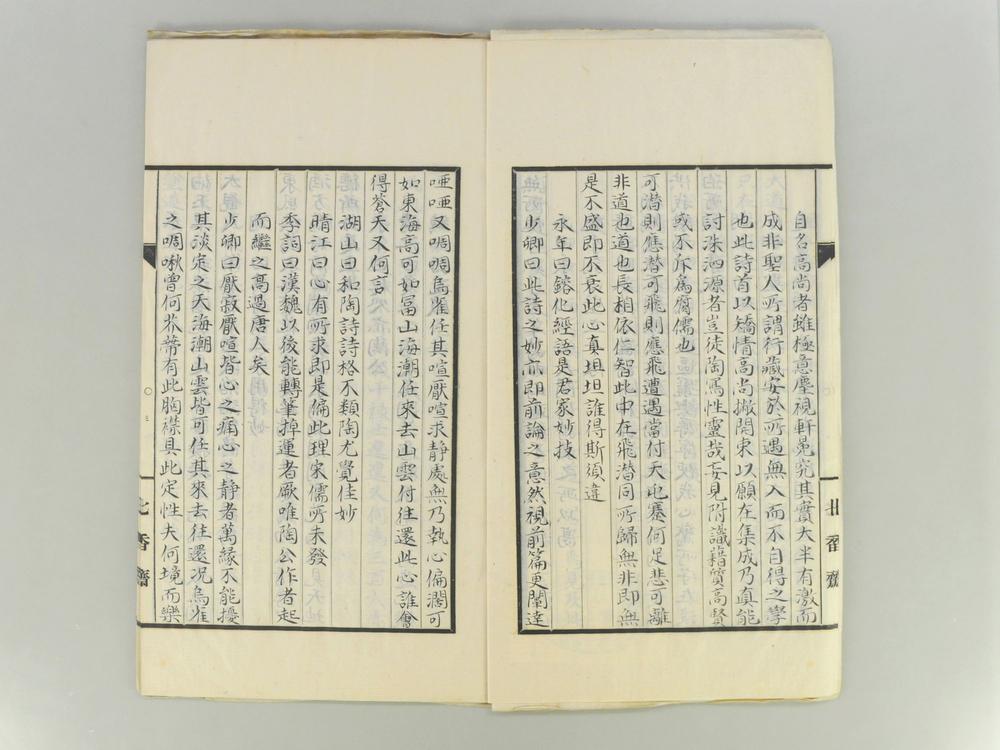 自名高尚者雖極意塵視軒冕究其實大半有激而
成非聖人所謂行藏安於所遇無入而不自得之學
也此詩首以矯情高尚撇開束以願在集成乃真能
討洙泗源者豈徒陶寫性靈哉妄見附識藉質高賢
或不斥為腐儒也
可潜則應潜可飛則應飛遭遇當付天屯蹇何足悲可離
非道也道也長相依仁智此中在飛潜同所歸無非即無
是不盛即不衰此心真坦坦誰得斯須違
永年曰鎔化經語是君家妙技
少卿曰此詩之妙亦即前論之意然視前篇更闡達
北香齋
啞啞又啁啁烏雀任其喧厭喧求靜處無乃執心偏濶可
如東海高可如冨山海潮任來去山雲付往還此心誰會
得蒼天又何言
湖山曰和陶詩詩格不類陶尤覺佳妙
晴江曰心有所求即是偏此理宋儒所未發
季詞曰漢魏以後能轉筆掉運者厥唯陶公作者起
而繼之高過唐人矣
少卿曰厭寂厭喧皆心之病心之静者萬緣不能擾
其淡定之天海潮山雲皆可任其來去往還况烏雀
之啁啾曾何芥蒂有此胸襟具此定性夫何境而樂
北香齋